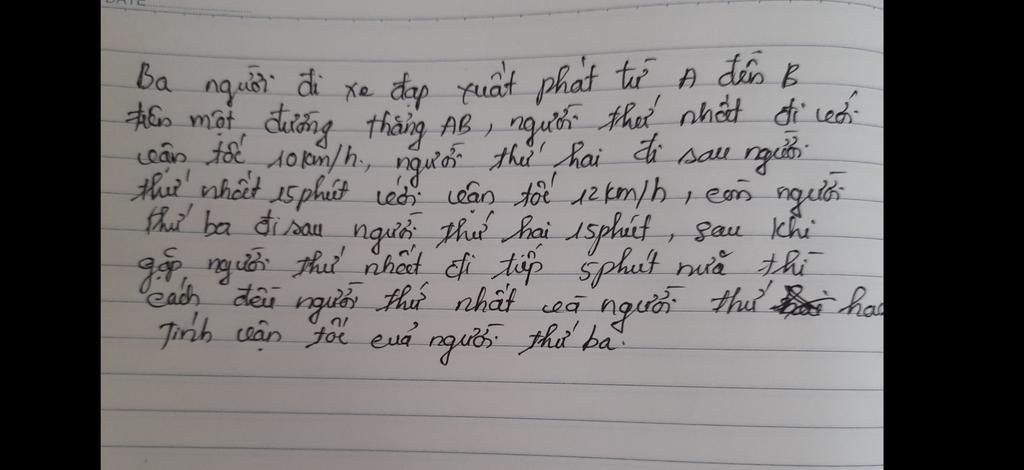 DATE
Ba người đi xe đạp xuất phát từ A đến B
trên một đường thẳng AB, người thứ nhất đi với
vận tốc 10km/h., người thứ hai đi sau người
thứ nhất 15phút với vận tốc 12km/h, còn người
thứ ba đi sau người thứ hai 15phút, sau khi
gặp người thứ nhất đi tiếp 5phút nữa thì
cách đều người thứ nhất và người thứ hai
Tính vận tốc của người thứ ba.